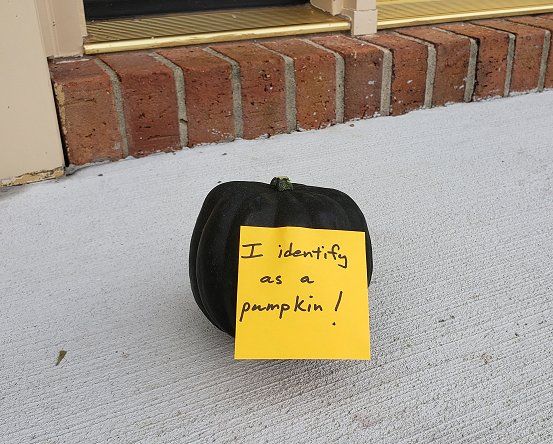 I identify
as a
pumpkin!